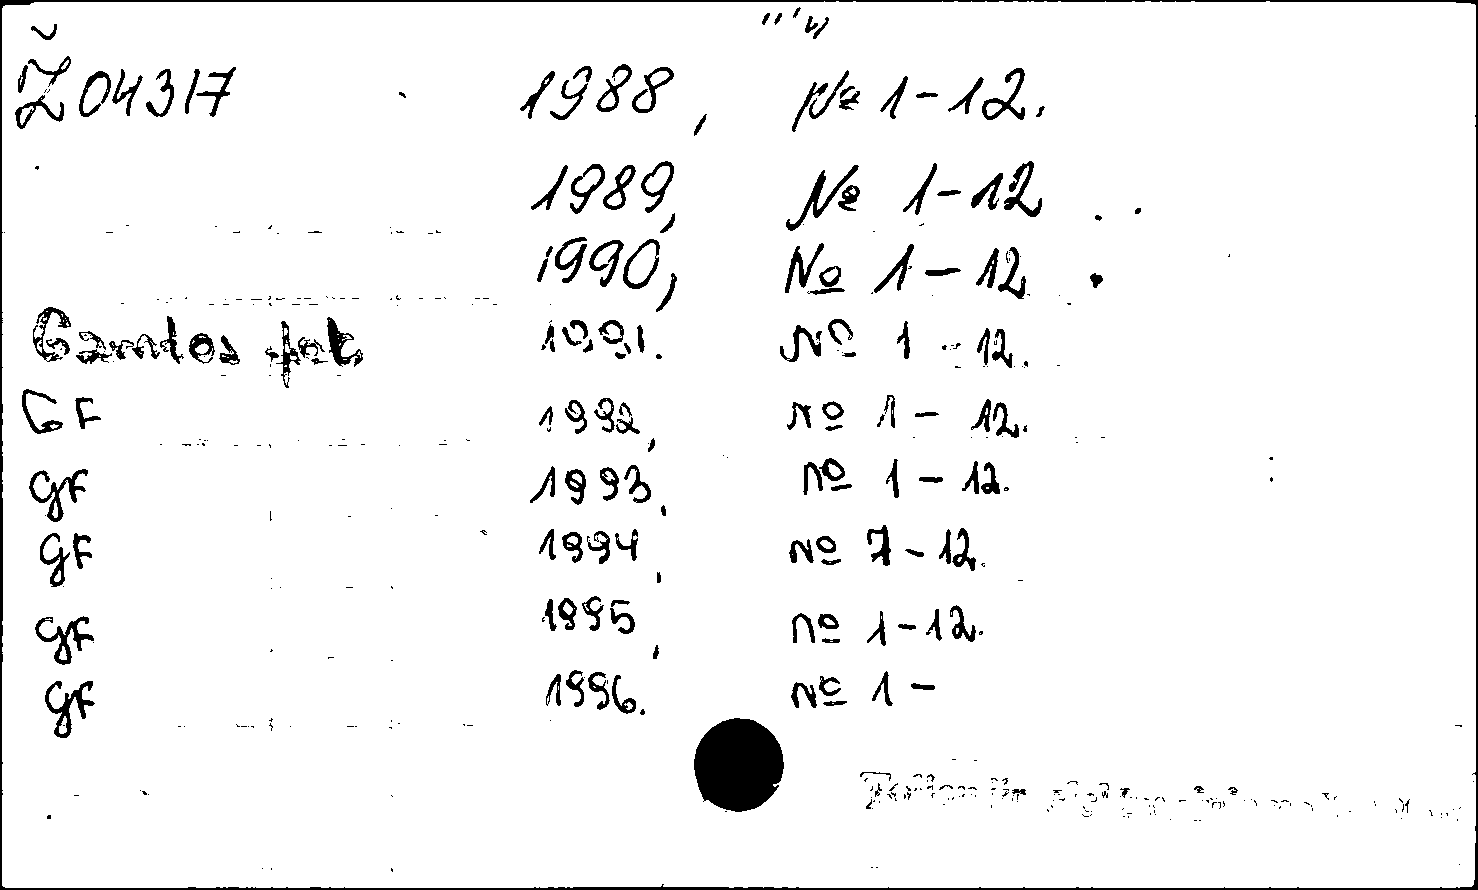 Ž04317 1988, № 1-12.
1989, № 1-12
1990, № 1-12
Gamtos fak. 1991. № 1-12.
GF 1992, № 1-12.
GF 1993, № 1-12.
GF 1994, № 7-12.
GF 1995, № 1-12.
GF 1996. № 1-